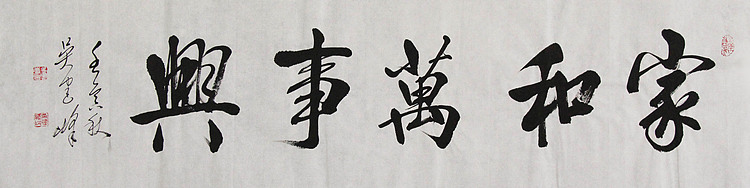 家和萬事興
壬寅秋
吳 峰